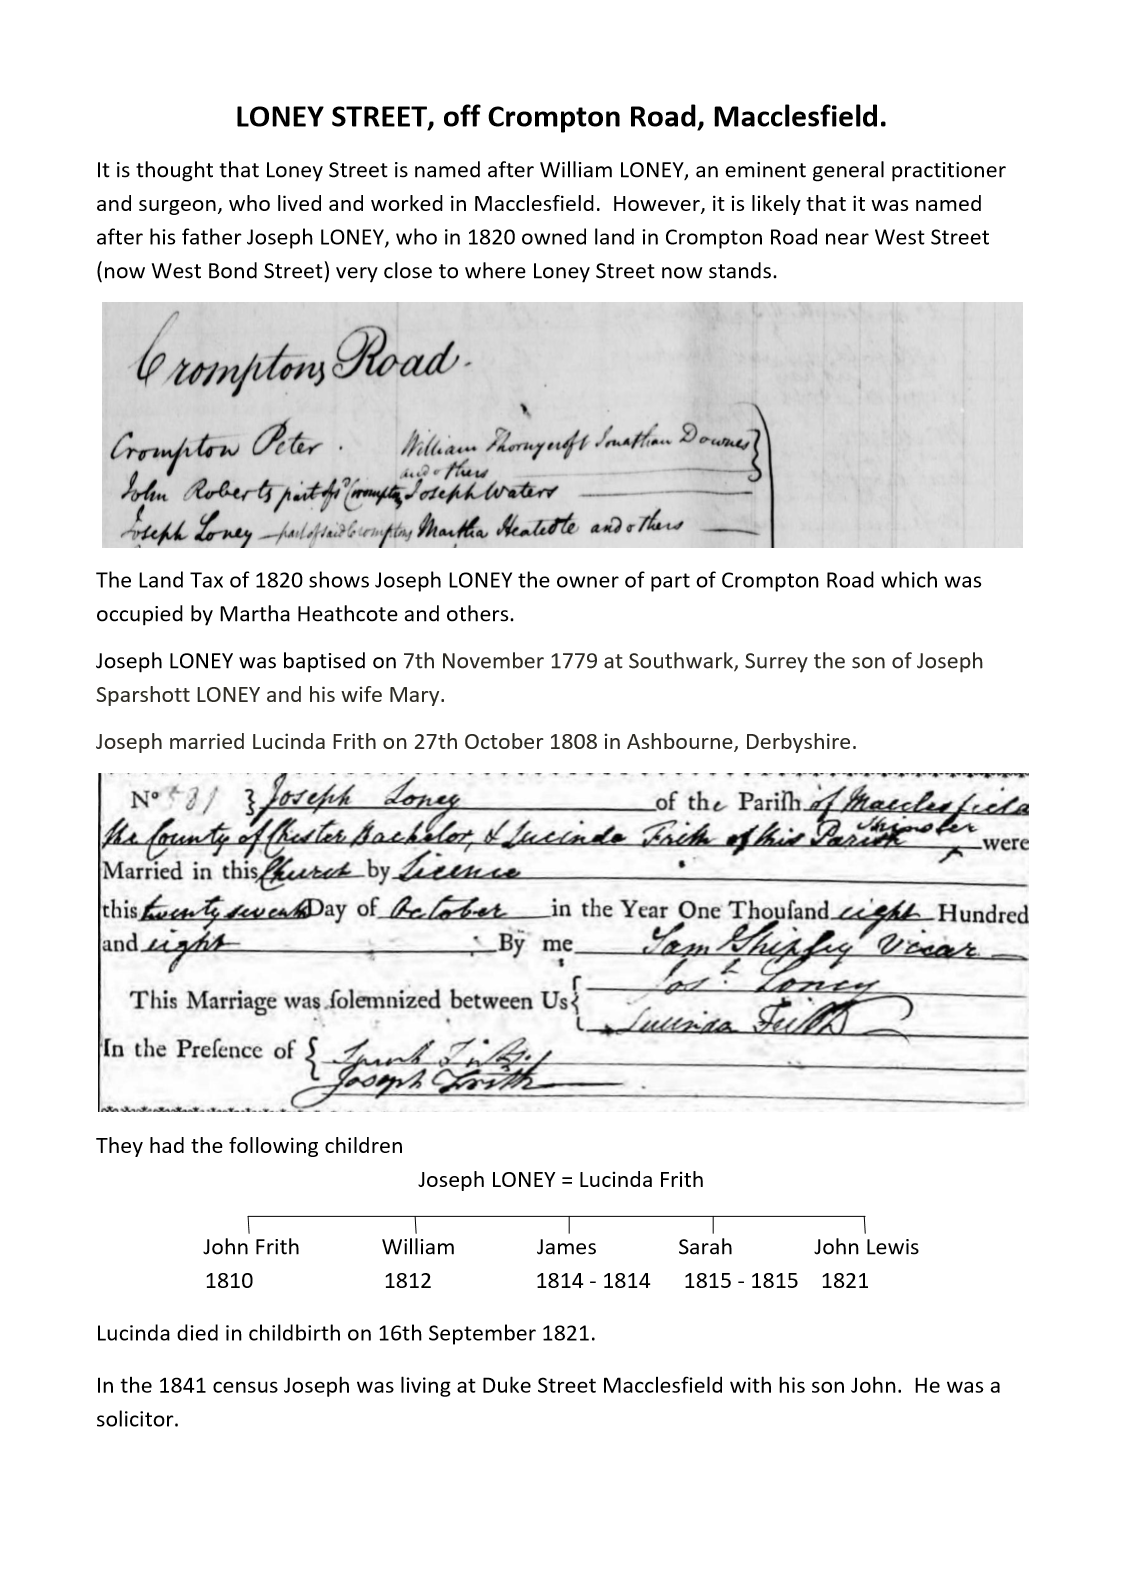 LONEY STREET, off Crompton Road, Macclesfield.
It is thought that Loney Street is named after William LONEY, an eminent general practitioner
and surgeon, who lived and worked in Macclesfield. However, it is likely that it was named
after his father Joseph LONEY, who in 1820 owned land in Crompton Road near West Street
(now West Bond Street) very close to where Loney Street now stands.
Cromptons Road.
Crompton Peter . William Thornycroft Jonathan Downes
and others
John Roberts part of Joseph Waters
Joseph Loney part of said Cromptons Martha and others
The Land Tax of 1820 shows Joseph LONEY the owner of part of Crompton Road which was
occupied by Martha Heathcote and others.
Joseph LONEY was baptised on 7th November 1779 at Southwark, Surrey the son of Joseph
Sparshott LONEY and his wife Mary.
Joseph married Lucinda Frith on 27th October 1808 in Ashbourne, Derbyshire.
No } Joseph Loney of the Pariſh of Macclesfield
the County of Chester Bachelor, & Lucinda Frith of this Parish Spinster were
Married in this Church by Licence
this twenty seventh Day of October in the Year One Thouſand eight Hundred
and eight By me Sam Shipley Vicar
This Marriage was ſolemnized between Us { Josh. Loney
Lucinda Frith
In the Preſence of {
Joseph Frith
They had the following children
Joseph LONEY = Lucinda Frith
John Frith William James Sarah John Lewis
1810 1812 1814 - 1814 1815 - 1815 1821
Lucinda died in childbirth on 16th September 1821.
In the 1841 census Joseph was living at Duke Street Macclesfield with his son John. He was a
solicitor.